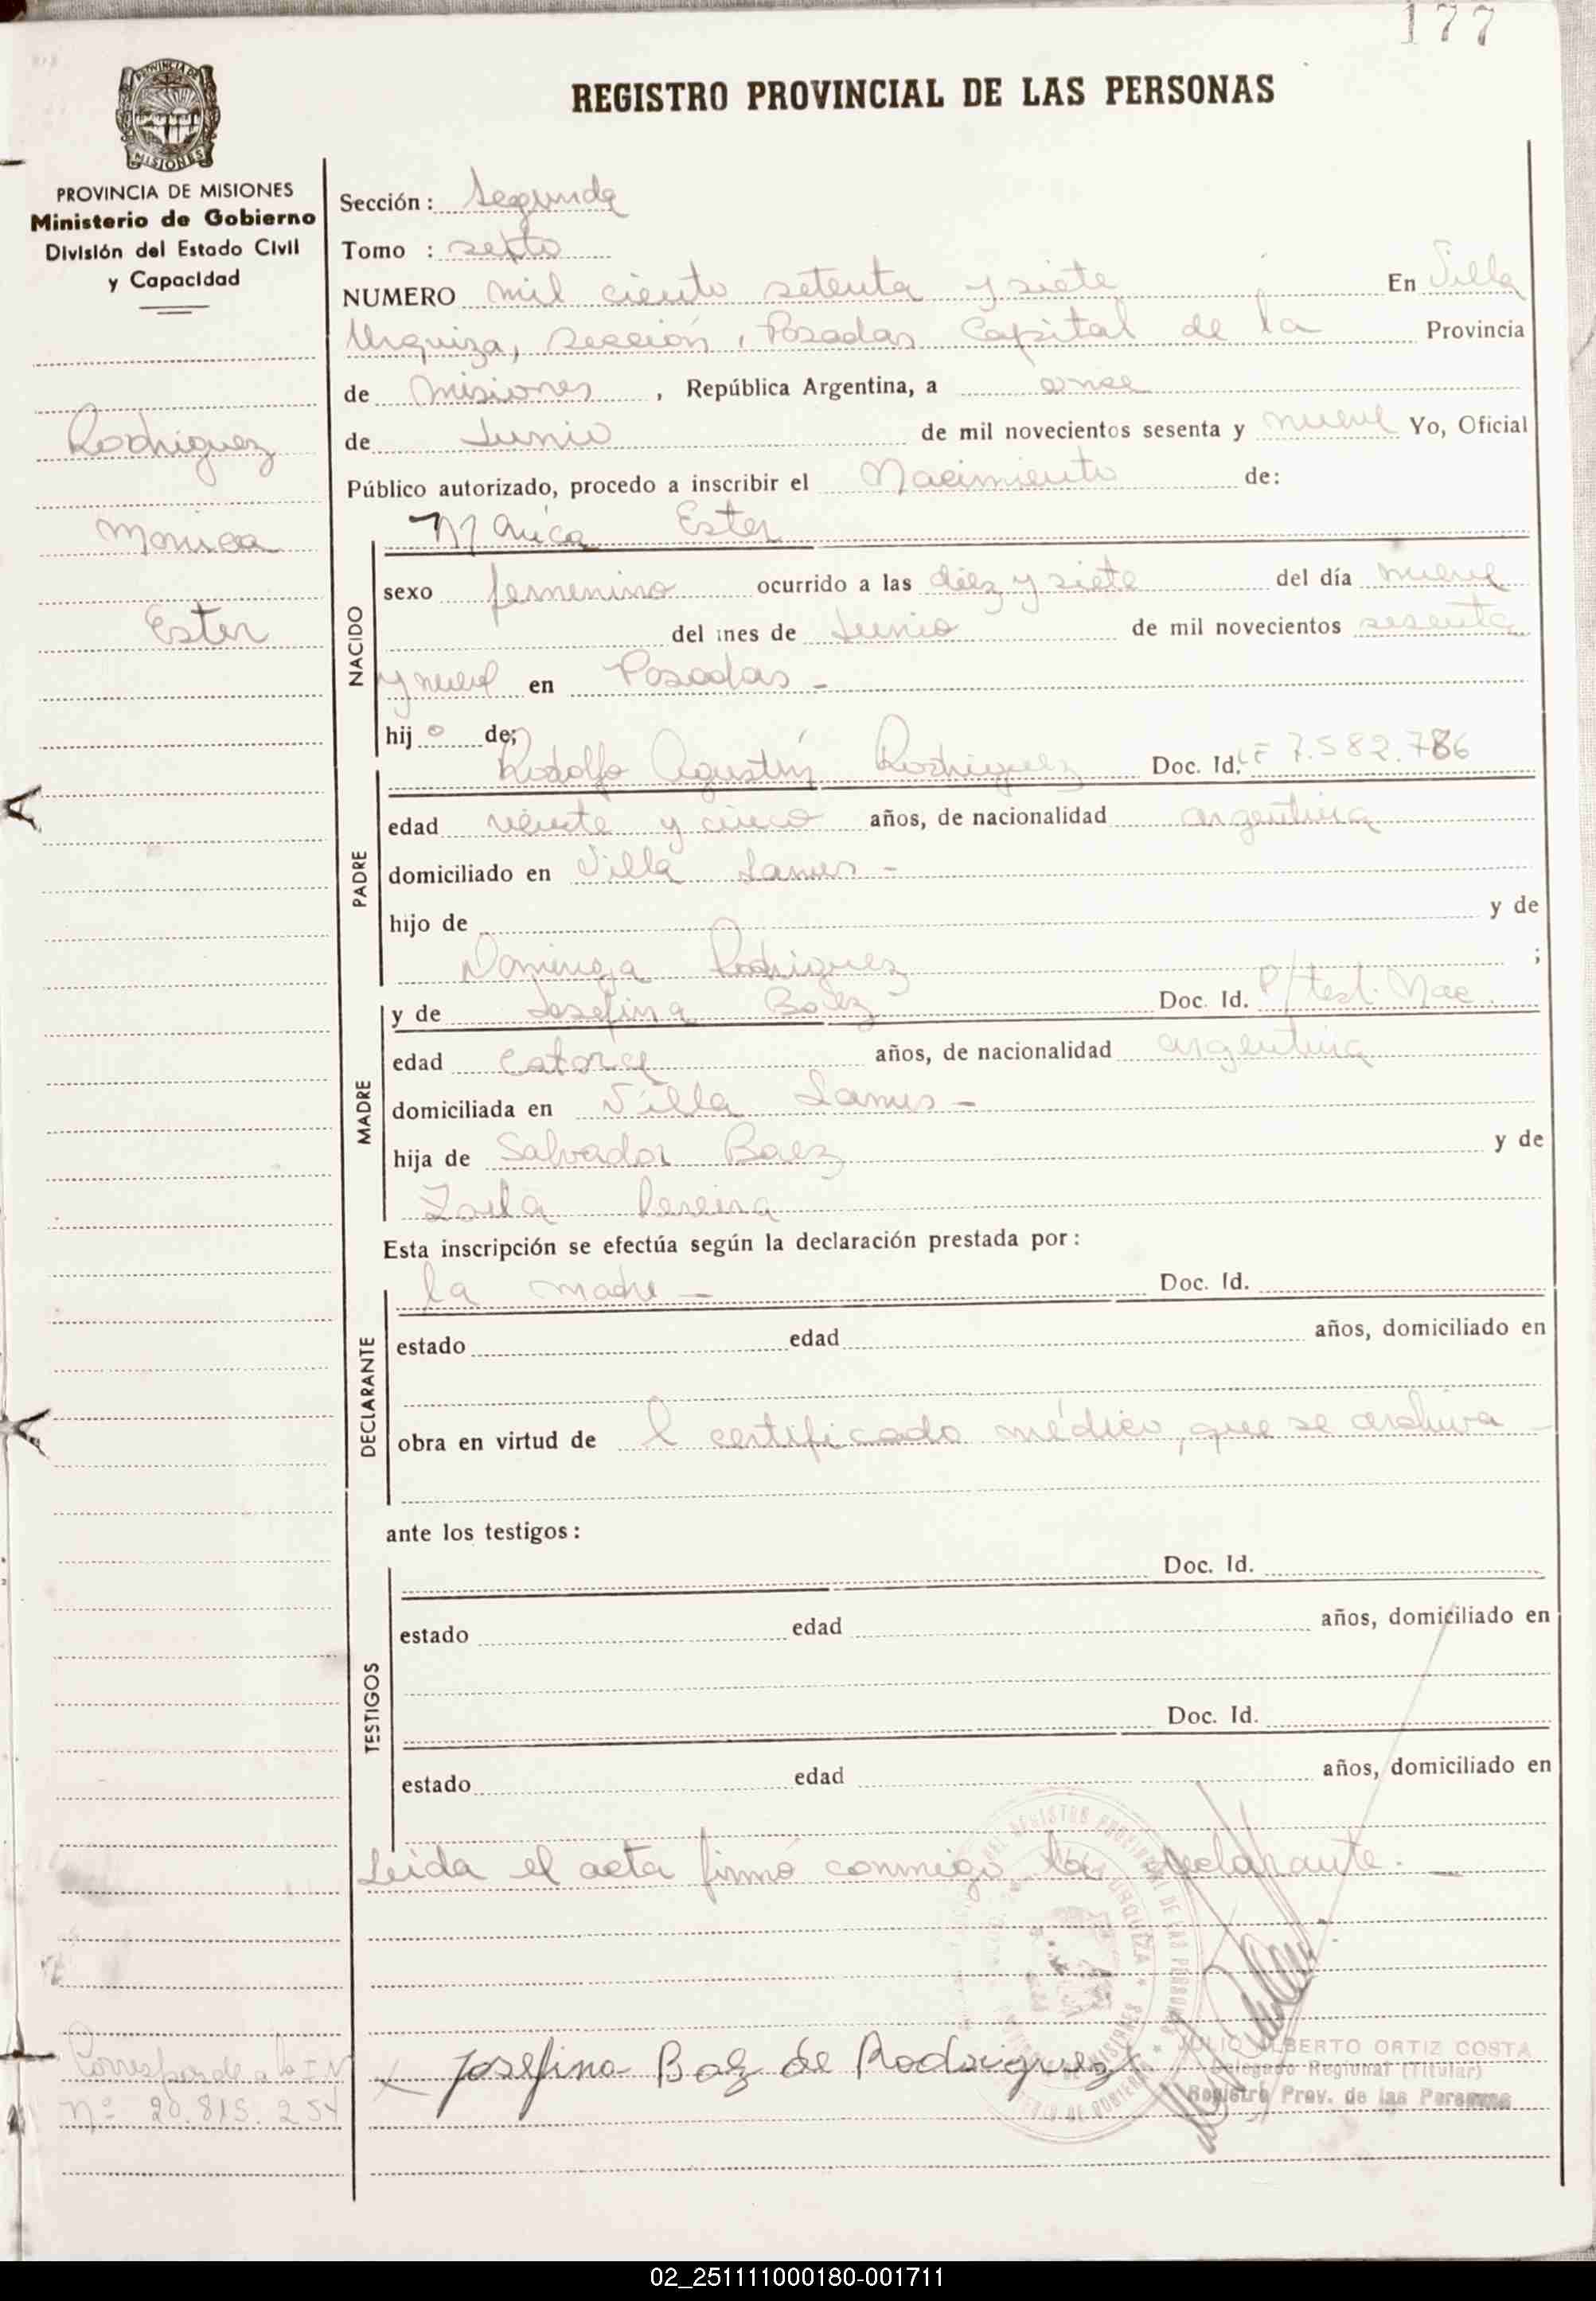 177
REGISTRO PROVINCIAL DE LAS PERSONAS
PROVINCIA DE MISIONES
MISIONES
PROVINCIA DE MISIONES
Ministerio de Gobierno
División del Estado Civil
y Capacidad
Rodriguez
Monica
Ester
Sección: Segunda
Tomo : sexto
NUMERO mil ciento setenta y siete En Villa
Urquiza, sección, Posadas Capital de la Provincia
de Misiones, República Argentina, a once
de Junio de mil novecientos sesenta y nueve Yo, Oficial
Público autorizado, procedo a inscribir el Nacimiento de:
Ester
NACIDO
sexo femenino ocurrido a las diez y siete del día nueve
del mes de Junio de mil novecientos sesenta
y nueve en Posadas -
hij o de;
PADRE
Rodolfo Agustín Rodriguez Doc. Id. LE 7.582.786
edad veinte y cinco años, de nacionalidad argentina
domiciliado en Villa Lanus -
hijo de y de
Dominga Rodriguez ;
MADRE
y de Josefina Baez Doc. Id. P/test. Nac.
edad catorce años, de nacionalidad argentina
domiciliada en Villa Lanus -
hija de Salvador Baez y de
Zoila Pereira
Esta inscripción se efectúa según la declaración prestada por:
DECLARANTE
la madre - Doc. Id.
estado edad años, domiciliado en
obra en virtud de l certificado médico, que se archiva -
ante los testigos:
TESTIGOS
Doc. Id.
estado edad años, domiciliado en
Doc. Id.
estado edad años, domiciliado en
Leida el acta firmó conmigo la declarante. -
Corresponde a la I.N
Nº 20.815.254
Josefina Baez de Rodriguez
JULIO ALBERTO ORTIZ COSTA
Delegado Regional (Titular)
Registro Prov. de las Personas
02_251111000180-001711